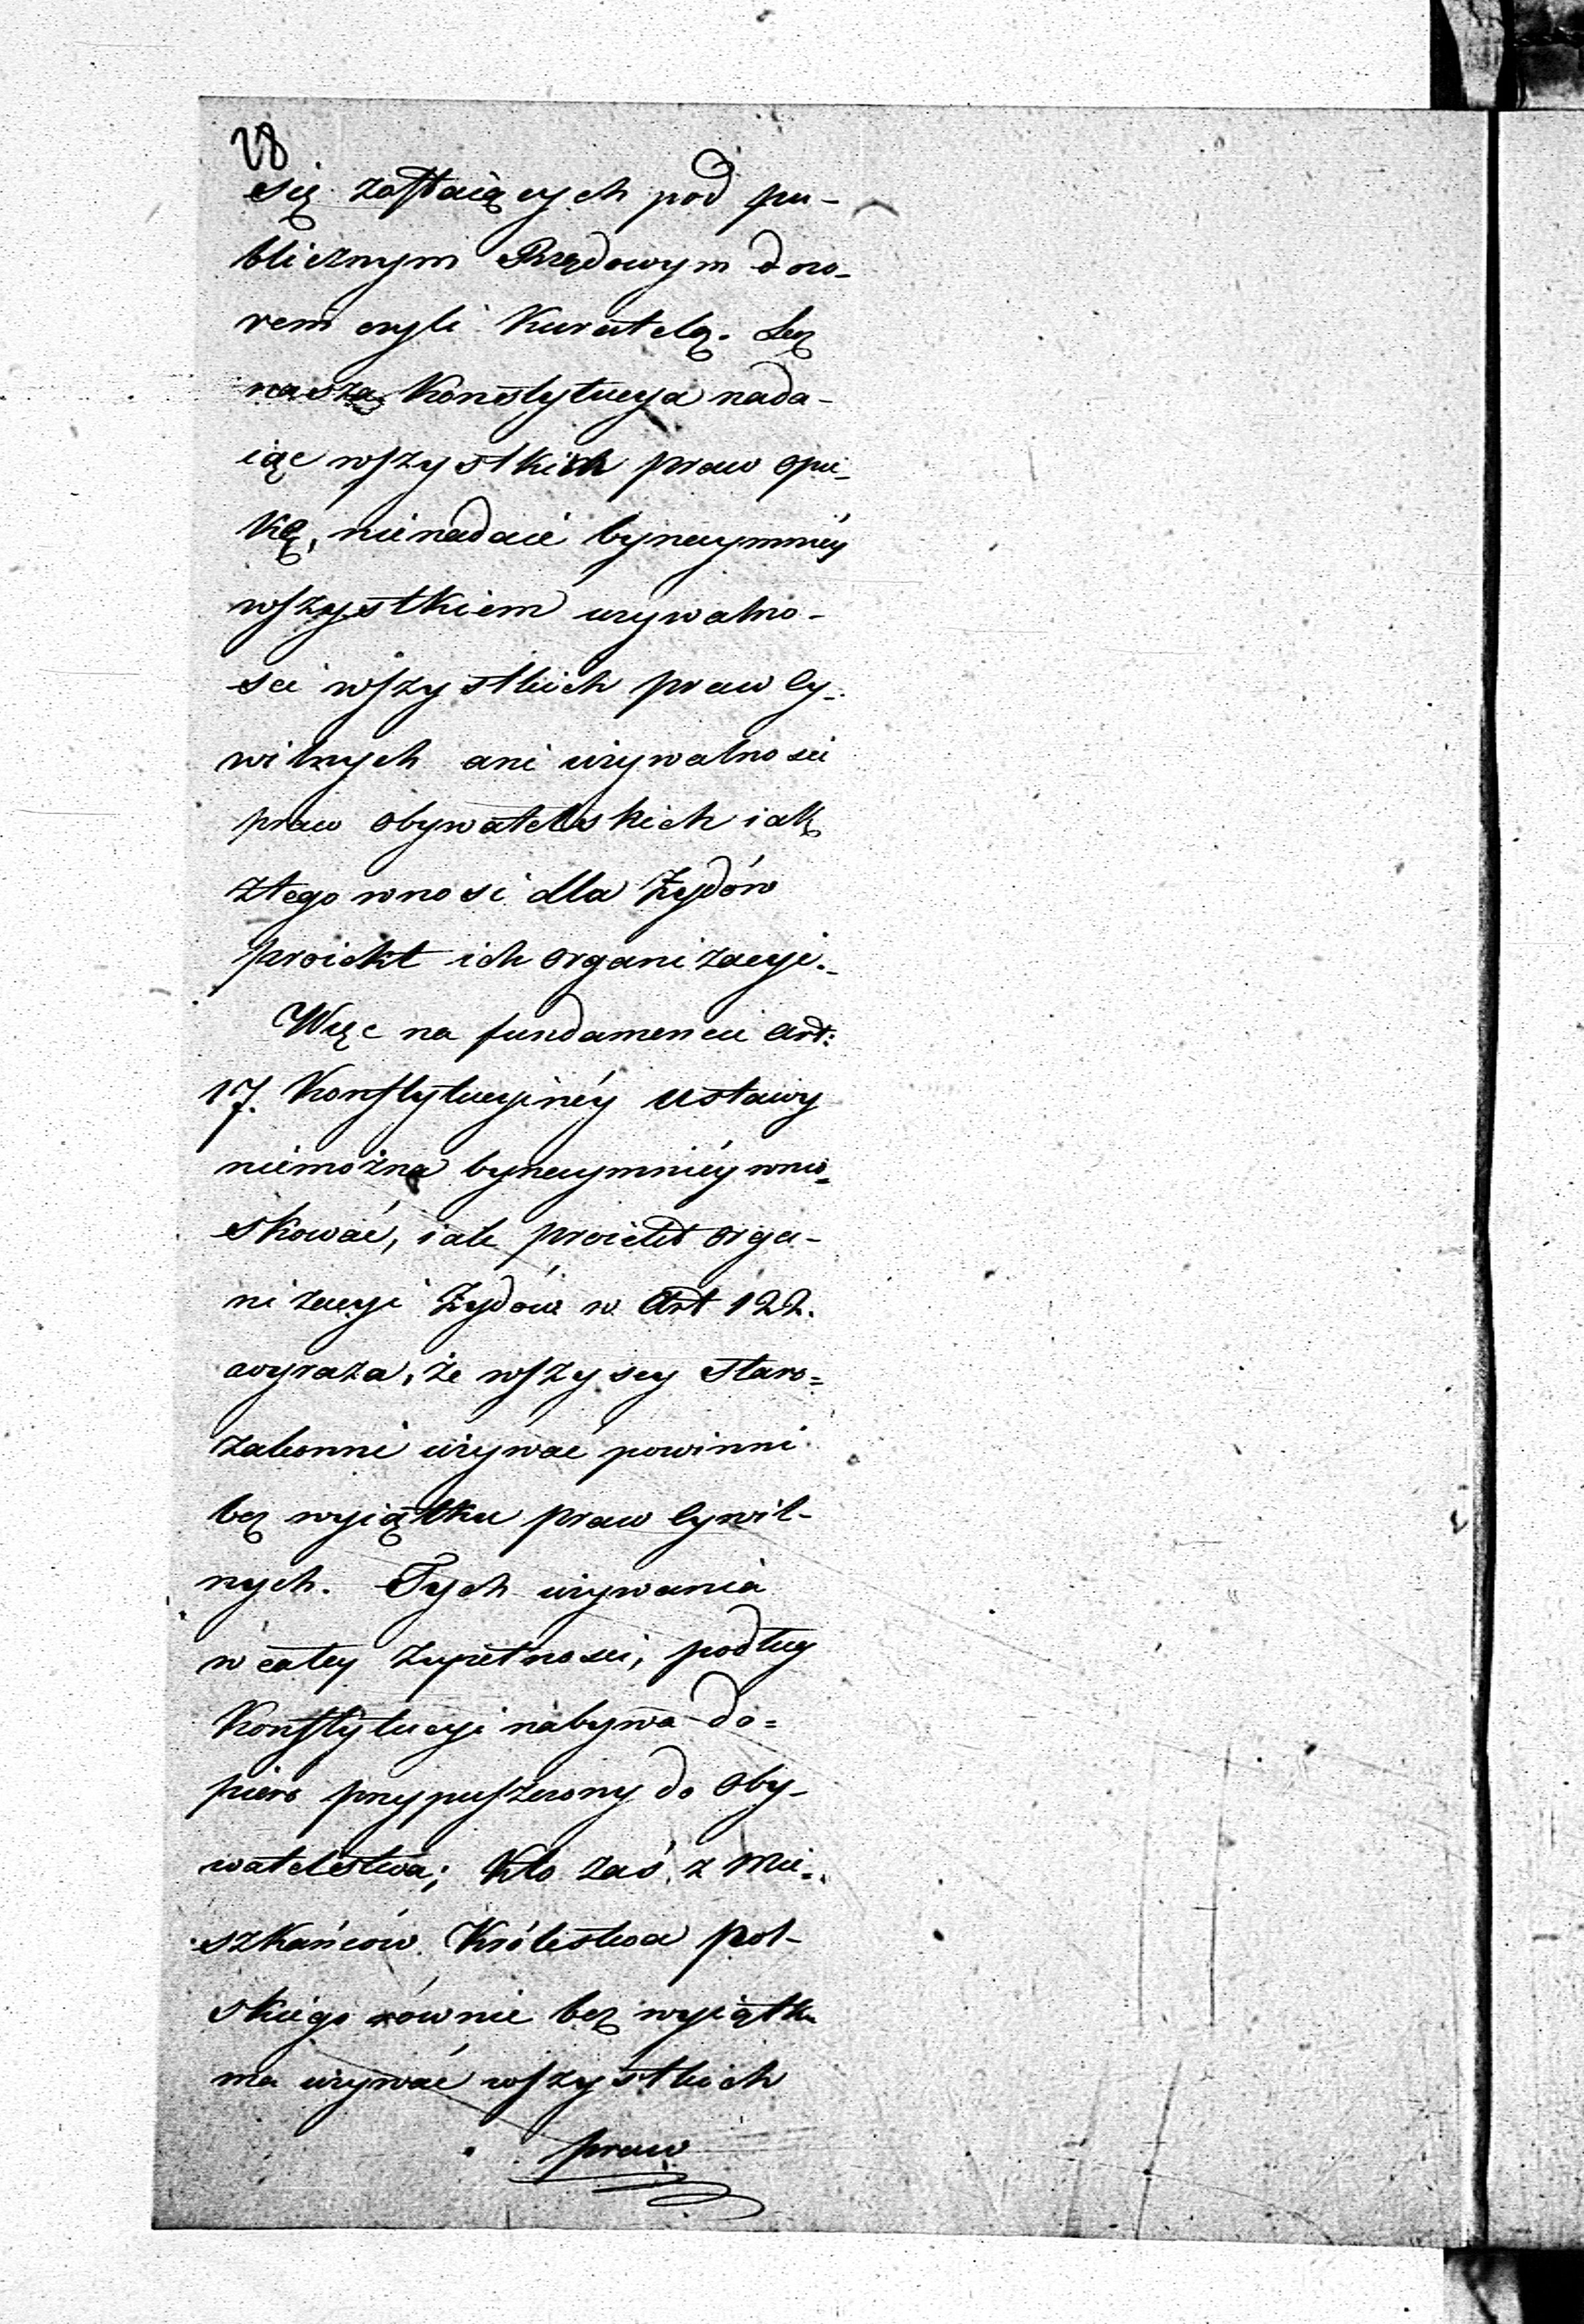 28
się zostaiących pod pu-
blicznym Rządowym dozo-
rem czyli Kuratelą. Lecz
nasza Konstytucya nada-
iąc wszystkich praw opie-
kę, nienadaie bynaymniéy
wszystkiem używalno-
sci wszystkich praw Cy-
wilnych ani używalnosci
praw obywatelskich iak
ztego wnosi dla Żydów
proiekt ich organizacyi.
Więc na fundamencie Art:
17. Konstytucyinéy Ustawy
niemożna bynaymniéy wnio=
skować, iak proiekt orga-
nizacyi Żydów w Art 122.
wyraża, że wszyscy Staro=
zakonni używać powinni
bez wyiątku praw Cywil-
nych. Tych używania
w całey zupełnosci, podług
Konstytucyi nabywa do=
piero przypuszczony do Oby-
watelstwa; Kto zaś z Mie=
szkańców Królestwa Pol-
skiego równie bez wyiątku
ma używać wszystkich
praw